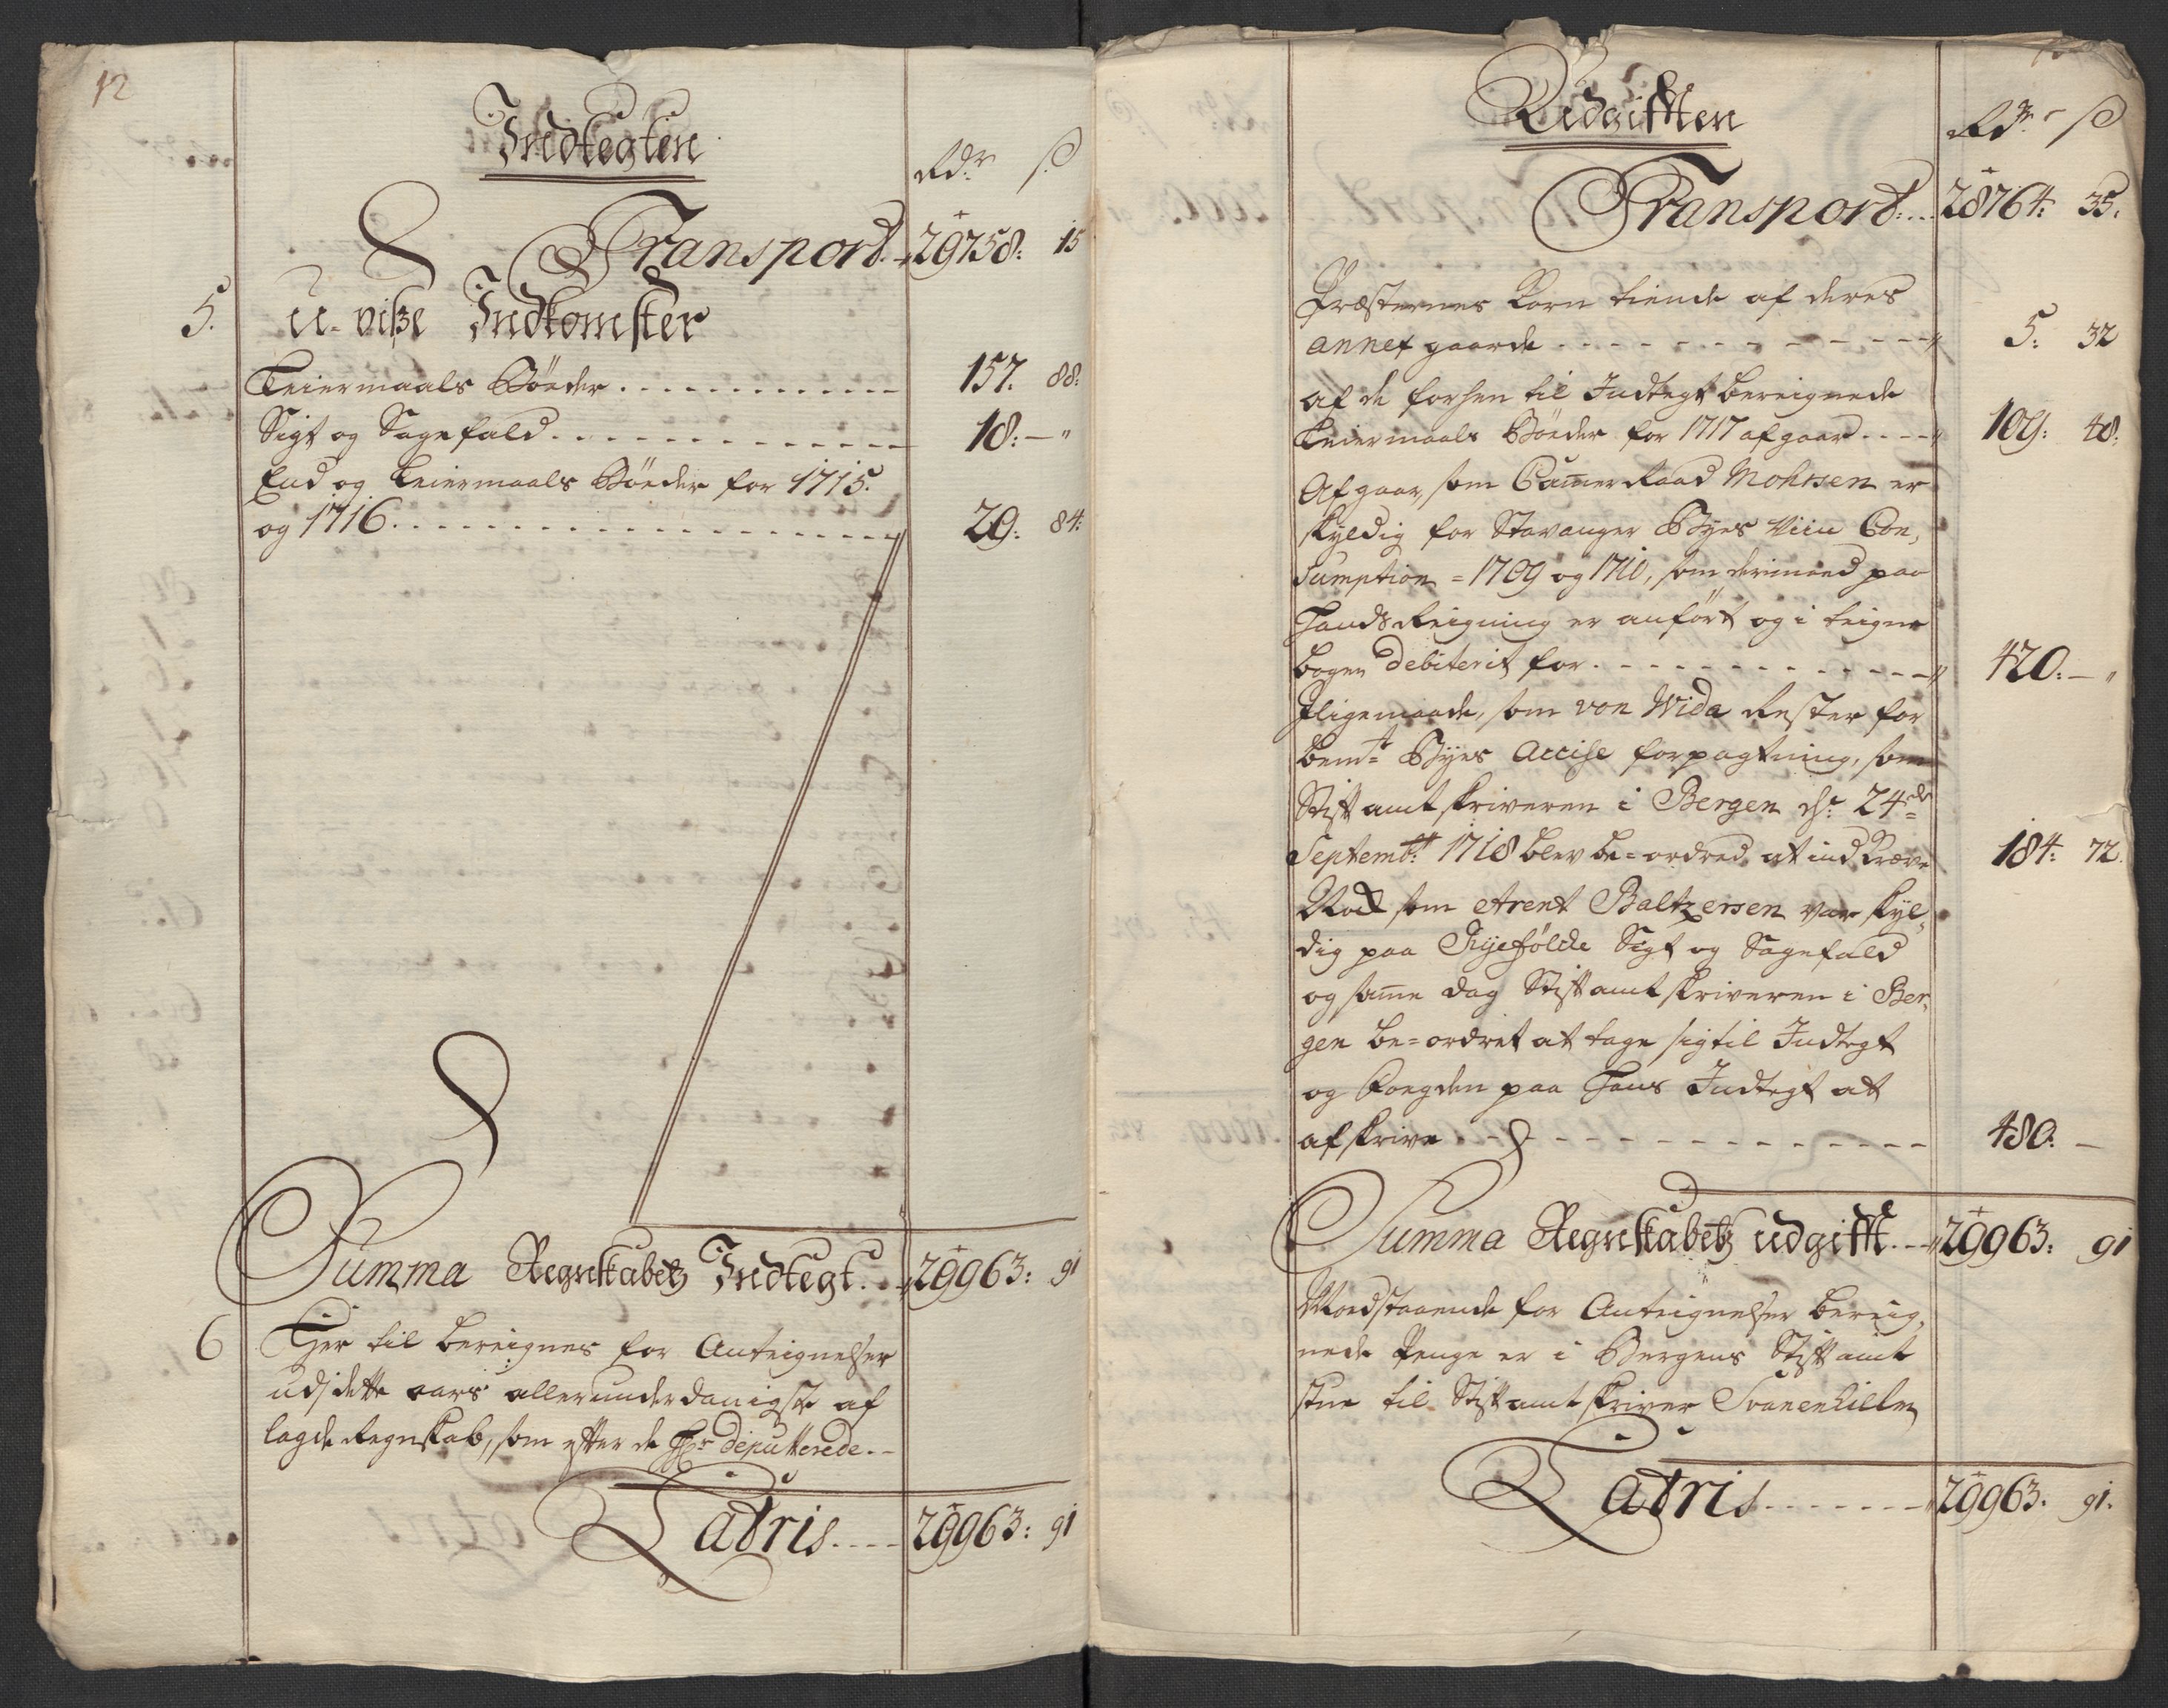 12
Indtegten
Rdr ß
Transport 29758: 15
5. u-viße Indkomster
Leiermaals Bøder 157. 88:
Sigt og Sagefald 18: — "
End og Leiermaals Bøder for 1715.
og 1716 29: 84:
Summa Regnskabetz Indtegt 29963: 91
6 Her til bereignes for Anteignelser
udj dette aars allerunderdanigste af
lagde Regnskab, som efter de Hr deputterede
Latris 29963: 91
Udgifften
Rdr ß
Transport 28764: 35.
Præsternes Korn tiende af deres
annex gaarde 5: 32
af de forhen til Indtegt bereignede
Leiermaals Bøder for 1717 afgaar 109: 48:
Afgaar, som Cammer Raad Mohrsen er
skyldig for Stavanger Byes Viin Con,
sumption = 1709 og 1710, som derimod paa
Hands Reigning er anført og i
bogen debiterit for 420: — "
Jligemaade, som von Wida Rester for
bemte Byes Accise forpagtning, som
Stiftamtskriveren i Bergen 24de
Septembr 1718 blev be=ordred at ind Kræve 184: 72.
Nok som Arent Baltzersen var skyl,
dig paa Ryefølcke Sigt og Sagefald
og samme dag Stiftamtskriveren i Ber,
gen be=ordret at tage sig til Indtegt
og Foegden paa Hans Indtegt at
afskrive 480: —
Summa Regnskabetz udgifft 29963: 91
Modstaaende for Anteignelser bereig,
nede Penge er i Bergens Stiftamt
stue til Stiftamtskriver Svanenhielm
Latris 29963. 91.